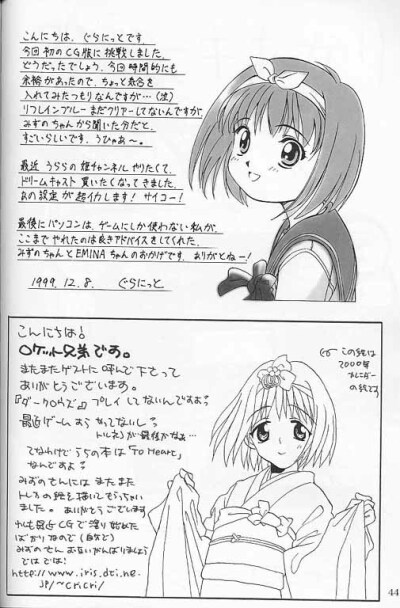 こんにちは、ぐらにっとです
今回初のCG版に挑戦しました。
どうだったでしょう、今回時間的にも
余裕があったので、ちょっと気合を
入れてみたつもりなんですが…(泣)
リフレインブルーまだクリアーしてないんですが
みずのちゃんから聞いた分だと、
すごいらしいです、うひゃあ〜。
最近 うららの 姫チャンネル やりたくて、
ドリームキャスト 買いたくなってきました。
あの設定が超イカします! サイコー!
最後にパソコンは、ゲームにしか使わない私が、
ここまでやれたのは良きアドバイスをしてくれた、
みずのちゃんとEMINAちゃんのおかげです、ありがとねー!
1999.12.8. ぐらにっと
こんにちは!
ロケット兄弟です。
またまたゲストに呼んで下さって
ありがとうございます。
プレイしてないんですよ
最近ゲームは
てなわけでうちの本は「To Heart」
なんですよ
みずのさんにはまたまた
トレカの絵も描いてもらっちゃい
ました。ありがとうございます。
最近CGで塗り始めた
ばかりなので
みずのさんおたがいがんばりましょう
ではでは!
http://www.iris.dti.ne.
jp/~cricri/
この絵は
2000年
カレンダー
の絵です
44